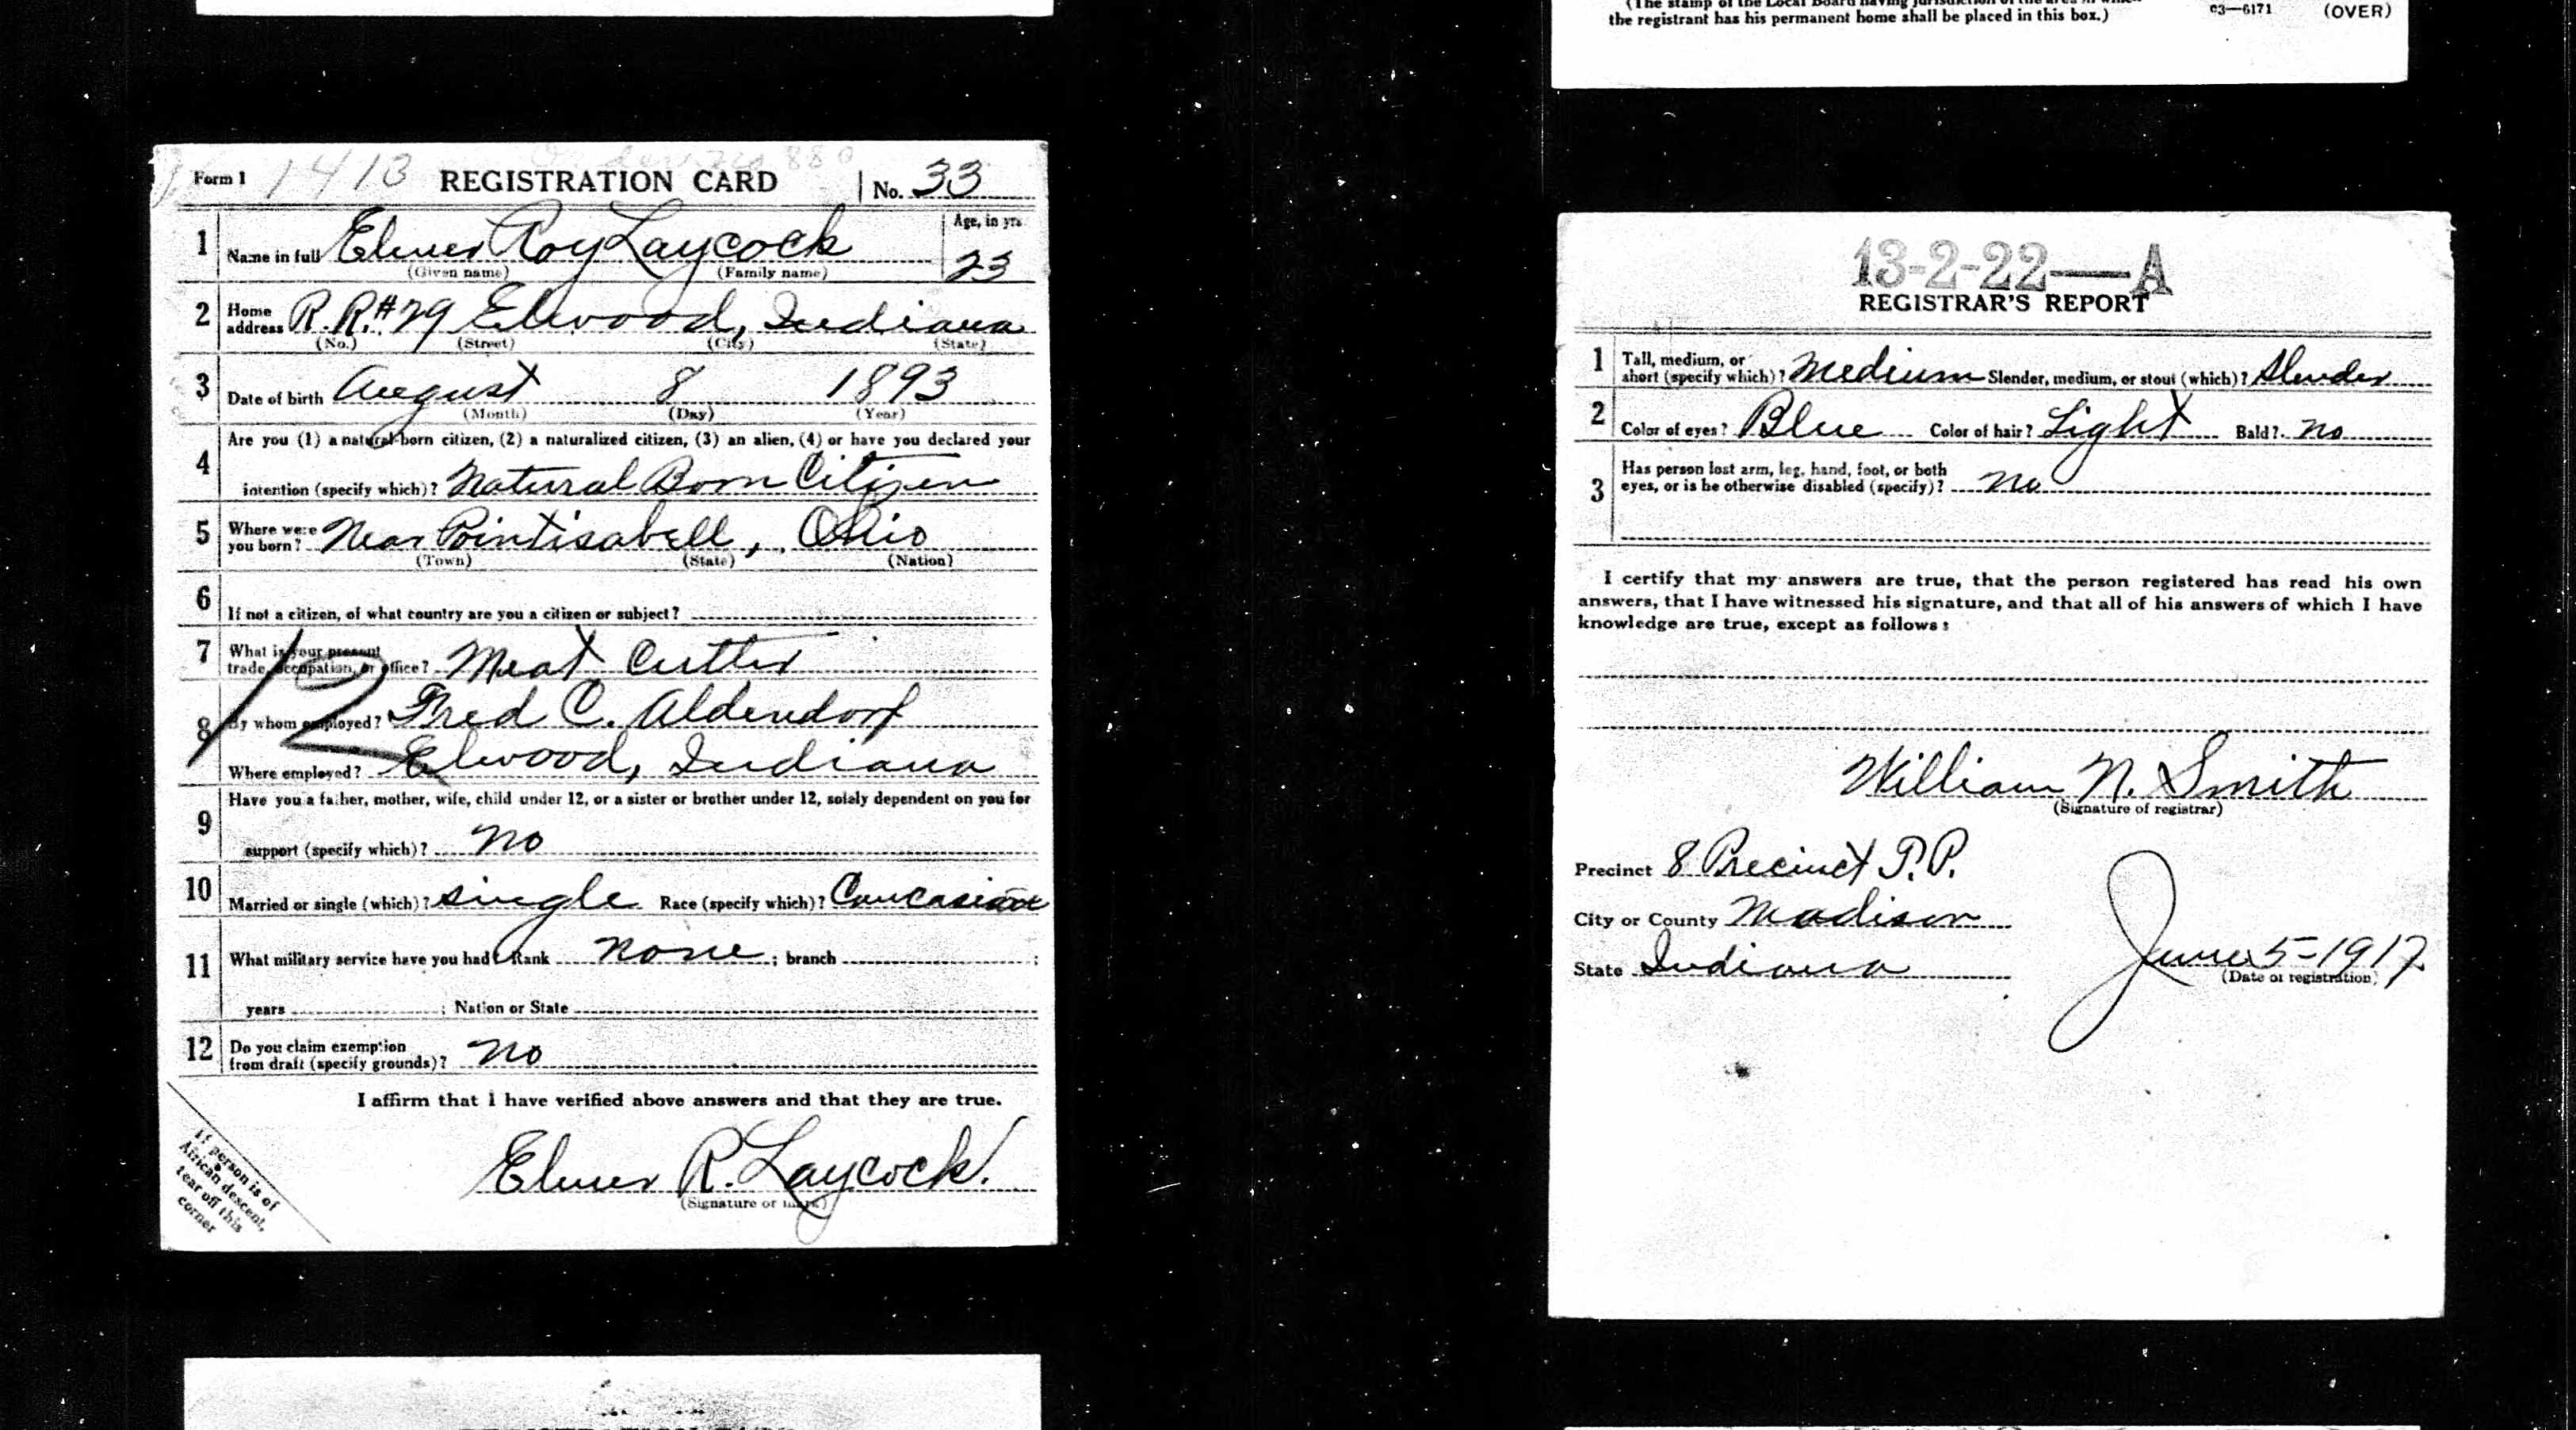 (The stamp of the Local Board having jurisdiction of the area in which
the registrant has his permanent home shall be placed in this box.)
03—6171 (OVER)
Form 1 1413 REGISTRATION CARD No. 33
1 Name in full Elmer Roy Laycock Age, in yrs. 23
(Given name) (Family name)
2 Home address R.R.#29 Elwood, Indiana
(No.) (Street) (City) (State)
3 Date of birth August 8 1893
(Month) (Day) (Year)
4 Are you (1) a natural-born citizen, (2) a naturalized citizen, (3) an alien, (4) or have you declared your
intention (specify which)? Natural Born Citizen
5 Where were you born? Near Pointisabell, Ohio
(Town) (State) (Nation)
6 If not a citizen, of what country are you a citizen or subject?
7 What is your present
trade, occupation, or office? Meat Cutter
12
8 By whom employed? Fred C. Aldendorf
Where employed? Elwood, Indiana
9 Have you a father, mother, wife, child under 12, or a sister or brother under 12, solely dependent on you for
support (specify which)? No
10 Married or single (which)? single Race (specify which)? Caucasian
11 What military service have you had? Rank none ; branch ;
years ; Nation or State
12 Do you claim exemption
from draft (specify grounds)? No
I affirm that I have verified above answers and that they are true.
Elmer R. Laycock.
(Signature or mark)
If person is of
African descent,
tear off this
corner
13-2-22—A
REGISTRAR'S REPORT
1 Tall, medium, or
short (specify which)? Medium Slender, medium, or stout (which)? Slender
2 Color of eyes? Blue Color of hair? Light Bald? No
3 Has person lost arm, leg, hand, foot, or both
eyes, or is he otherwise disabled (specify)? No
I certify that my answers are true, that the person registered has read his own
answers, that I have witnessed his signature, and that all of his answers of which I have
knowledge are true, except as follows:
William N. Smith
(Signature of registrar)
Precinct 8 Precinct P.P.
City or County Madison
State Indiana
June 5-1917
(Date of registration)